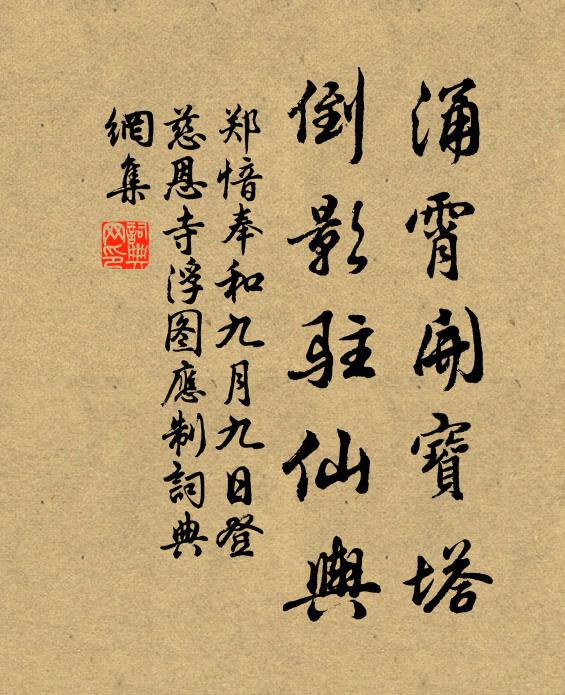 涌霄開寶塔
倒影駐仙輿
郑愔奉和九月九日登
慈恩寺浮图應制詞典
網集
詞典
网印